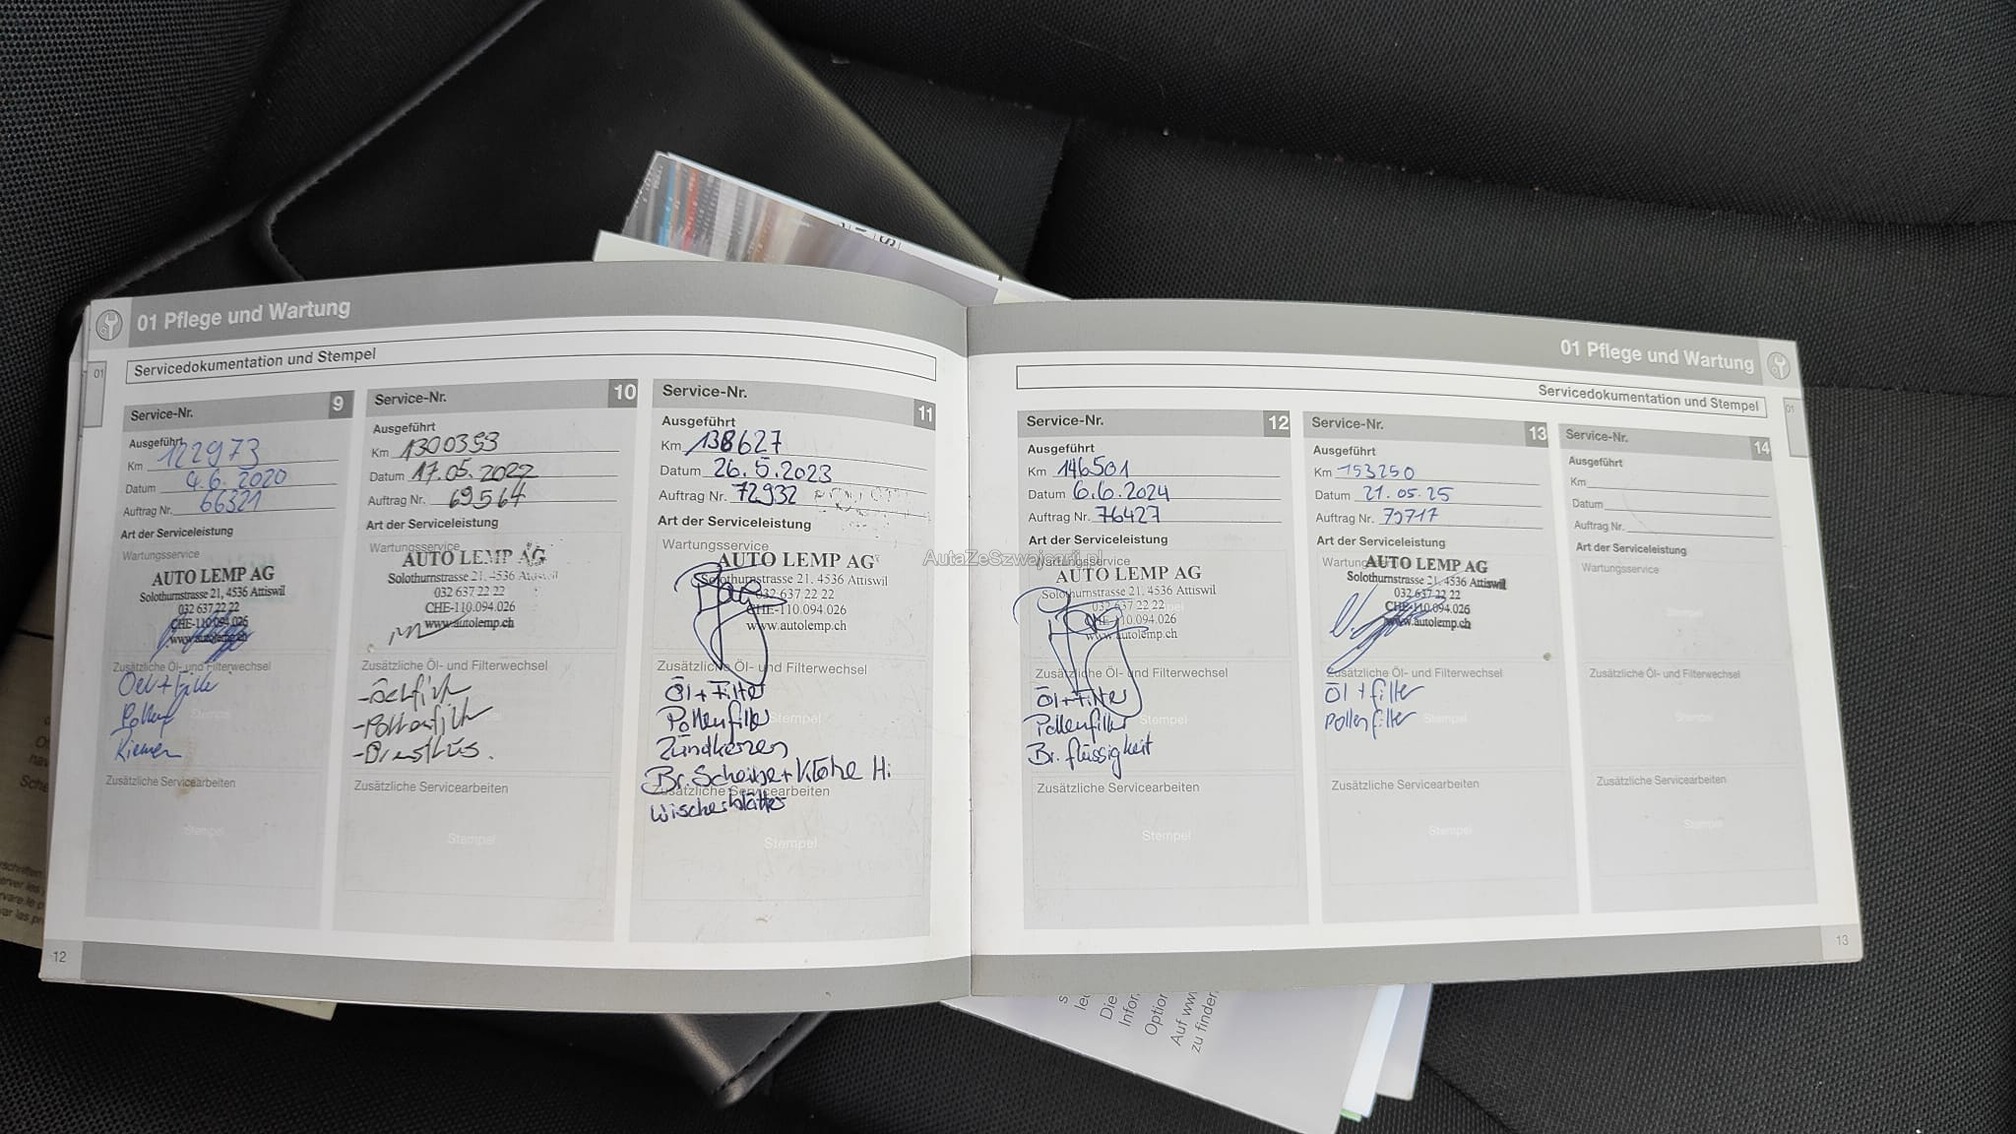 01 Pflege und Wartung
01
Servicedokumentation und Stempel
Service-Nr. 9
Ausgeführt
Km 122973
Datum 4.6.2020
Auftrag Nr. 66321
Art der Serviceleistung
Wartungsservice
AUTO LEMP AG
Solothurnstrasse 21, 4536 Attiswil
032 637 22 22
CHE-110.094.026
www.autolemp.ch
Zusätzliche Öl- und Filterwechsel
Stempel
Zusätzliche Servicearbeiten
Stempel
Service-Nr. 10
Ausgeführt
Km 1300353
Datum 17.05.2022
Auftrag Nr. 69564
Art der Serviceleistung
Wartungsservice
AUTO LEMP AG
Solothurnstrasse 21, 4536
032 637 22 22
CHE-110.094.026
www.autolemp.ch
Zusätzliche Öl- und Filterwechsel
Zusätzliche Servicearbeiten
Stempel
Service-Nr. 11
Ausgeführt
Km 138627
Datum 26.5.2023
Auftrag Nr. 72932
Art der Serviceleistung
Wartungsservice
AUTO LEMP AG
Solothurnstrasse 21, 4536 Attiswil
032 637 22 22
CHE-110.094.026
www.autolemp.ch
Zusätzliche Öl- und Filterwechsel
Öl + Filter
Pollenfilter
Stempel
Zündkerzen
Zusätzliche Servicearbeiten
Wischerblätter
Stempel
12
01 Pflege und Wartung
01
Servicedokumentation und Stempel
Service-Nr. 12
Ausgeführt
Km 146501
Datum 6.6.2024
Auftrag Nr. 76427
Art der Serviceleistung
AutaZeSzwajcarii.pl
Wartungsservice
AUTO LEMP AG
Solothurnstrasse 21, 4536 Attiswil
032 637 22 22
CHE-110.094.026
www.autolemp.ch
Zusätzliche Öl- und Filterwechsel
Öl + Filter
Pollenfilter
Stempel
Br. flüssigkeit
Zusätzliche Servicearbeiten
Stempel
Service-Nr. 13
Ausgeführt
Km 153250
Datum 21.05.25
Auftrag Nr. 79717
Art der Serviceleistung
AUTO LEMP AG
Solothurnstrasse 21, 4536 Attiswil
032 637 22 22
CHE-110.094.026
www.autolemp.ch
Zusätzliche Öl- und Filterwechsel
Öl + filter
Pollenfilter
Stempel
Zusätzliche Servicearbeiten
Stempel
Service-Nr. 14
Ausgeführt
Km
Datum
Auftrag Nr.
Art der Serviceleistung
Wartungsservice
Stempel
Zusätzliche Öl- und Filterwechsel
Stempel
Zusätzliche Servicearbeiten
Stempel
13
Die
Infor
Option
Auf www
zu finden